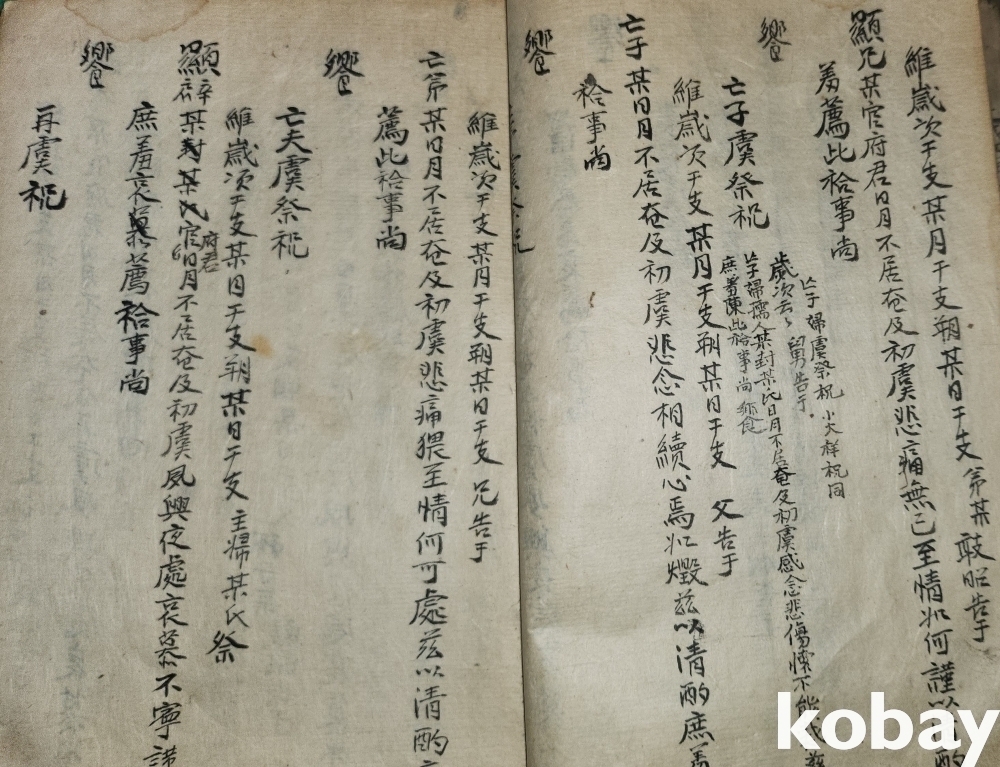 維歲次干支某月干支朔某日干支 弟某 敢昭告于
顯兄某官府君日月不居奄及初虞悲痛無已至情如何謹以清酌
羞薦此祫事尚
饗
亡子婦虞祭祝 小大祥祝同
歲次云〻 舅告于
亡子婦孺人某封某氏日月不居奄及初虞感念悲傷懷不能
庶羞陳此祫事尚饗
亡子虞祭祝
維歲次干支某月干支朔某日干支 父告于
亡子某日月不居奄及初虞悲念相續心焉如燬茲以清酌庶羞
祫事尚
饗
維歲次干支某月干支朔某日干支 兄告于
亡弟某日月不居奄及初虞悲痛猥至情何可處茲以清酌
薦此祫事尚
饗
亡夫虞祭祝
維歲次干支某月干支朔某日干支 主婦某氏 祭
顯辟某封某氏官府君日月不居奄及初虞夙興夜處哀慕不寧謹
庶羞哀薦祫事尚
饗
再虞祝
kobay